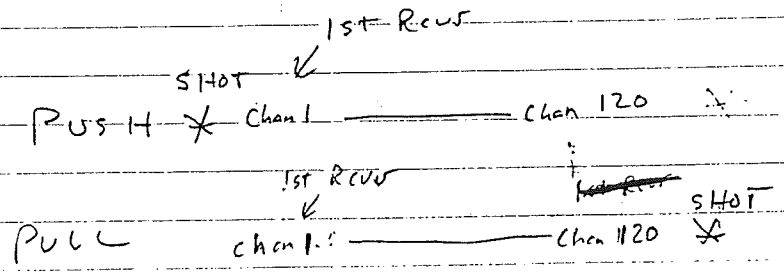 1st Rcvr
SHOT
PUSH Chan 1 Chan 120
1st Rcvr
SHOT
PULL Chan 1 Chan 120